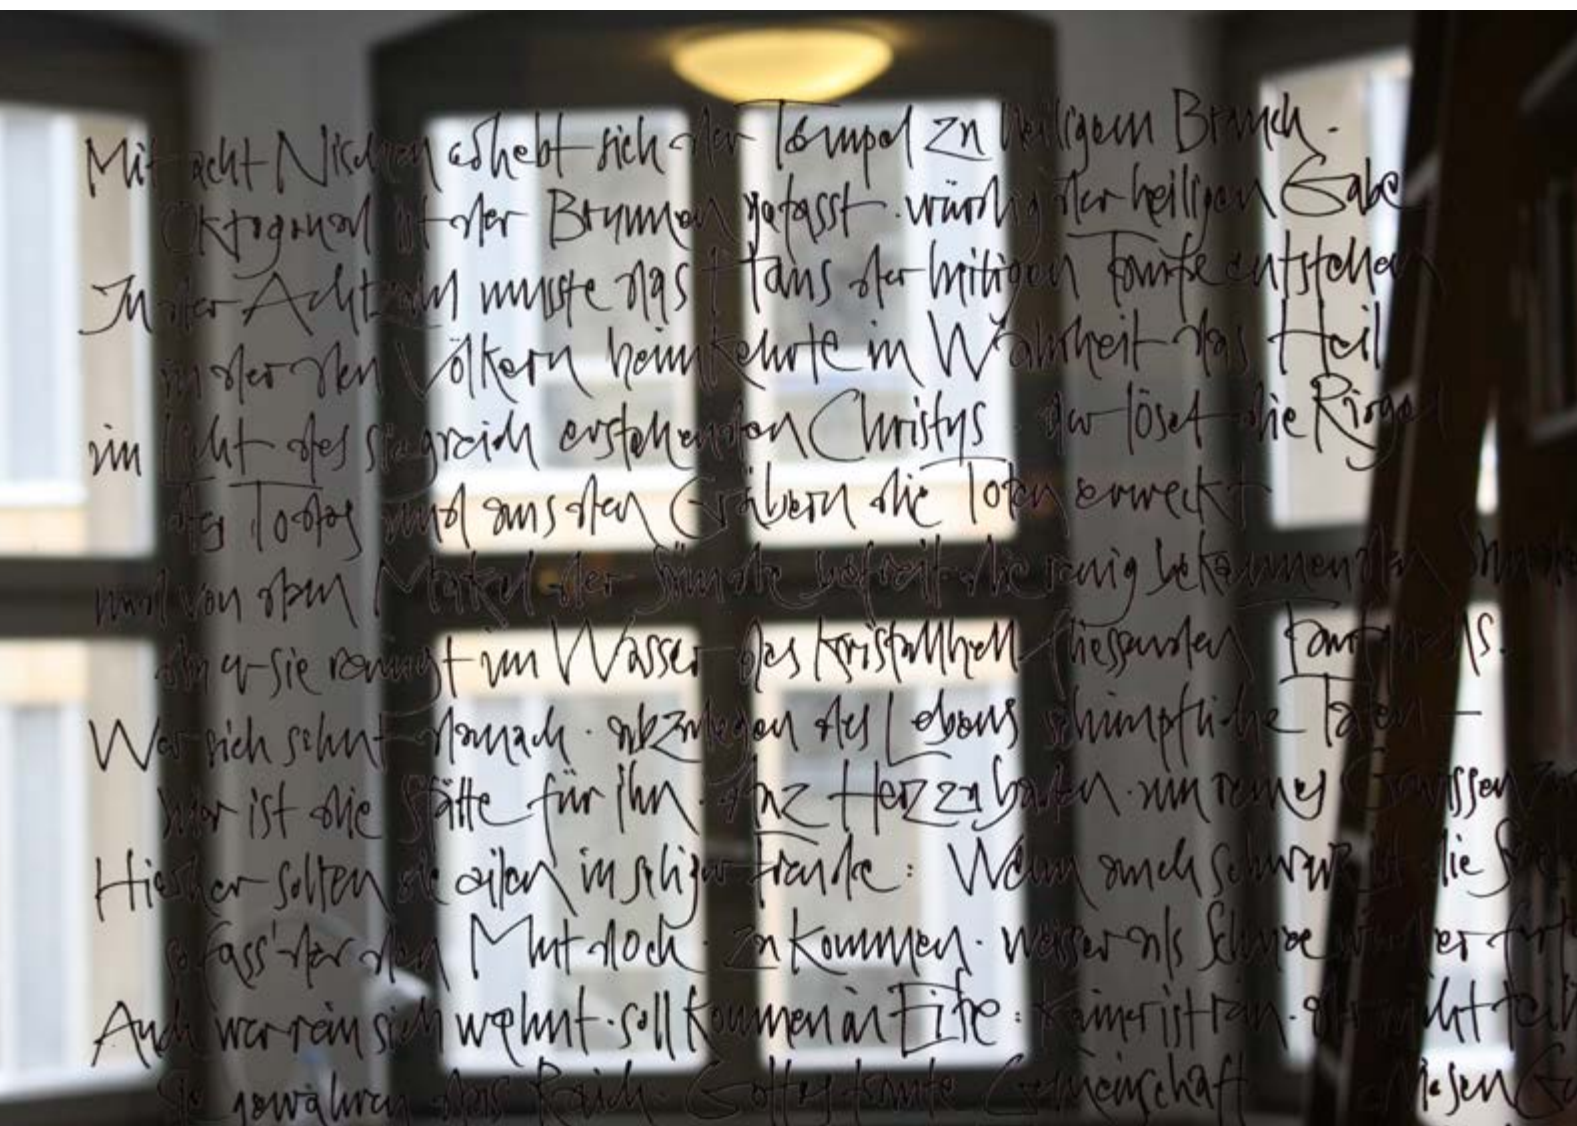 Mit acht Nischen erhebt sich der Tempel zu heiligem Brauch.
Oktogonal ist der Brunnen gefasst. würdig der heiligen Gabe
In der Achtzahl musste das Haus der heiligen Taufe entstehen
in der den Völkern heimkehrte in Wahrheit das Heil
im Licht des siegreich erstehenden Christus. der löset die Riegel
des Todes und aus den Gräbern die Toten erweckt
und von dem Makel der Sünde befreit die reuig bekennenden Sünder
den er sie reinigt im Wasser des kristallhell fliessenden Taufquells.
Wer sich sehnt danach. abzulegen des Lebens schimpfliche Taten –
hier ist die Stätte für ihn. das Herz zu baden. ein reines Gewissen
Hierher sollen sie eilen in seliger Freude: Wenn auch schwarz ist die
so fass' der den Mut doch. zu kommen. weisser als Schnee wird er
Auch wer rein sich wähnt. soll kommen in Eile: Keiner ist rein. der nicht teil
Sie gewähren das Reich. Gottes Gemeinschaft